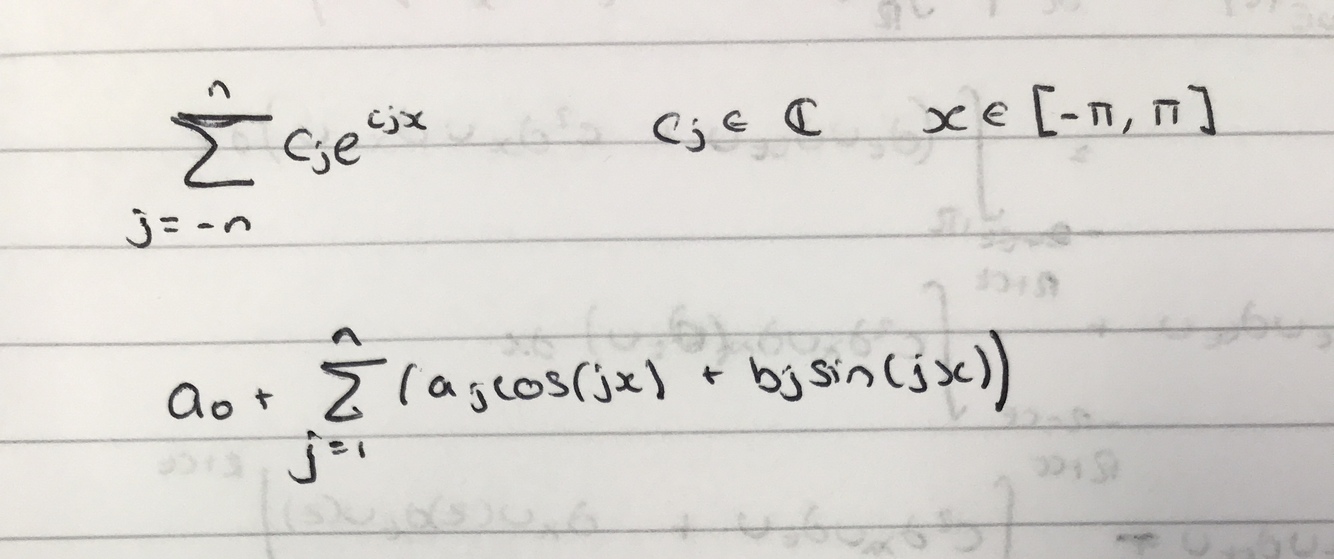 \sum_{j=-n}^{n} c_j e^{ijx} c_j ∈ ℂ x ∈ [-π, π]
a_0 + \sum_{j=1}^{n} (a_j cos(jx) + b_j sin(jx))